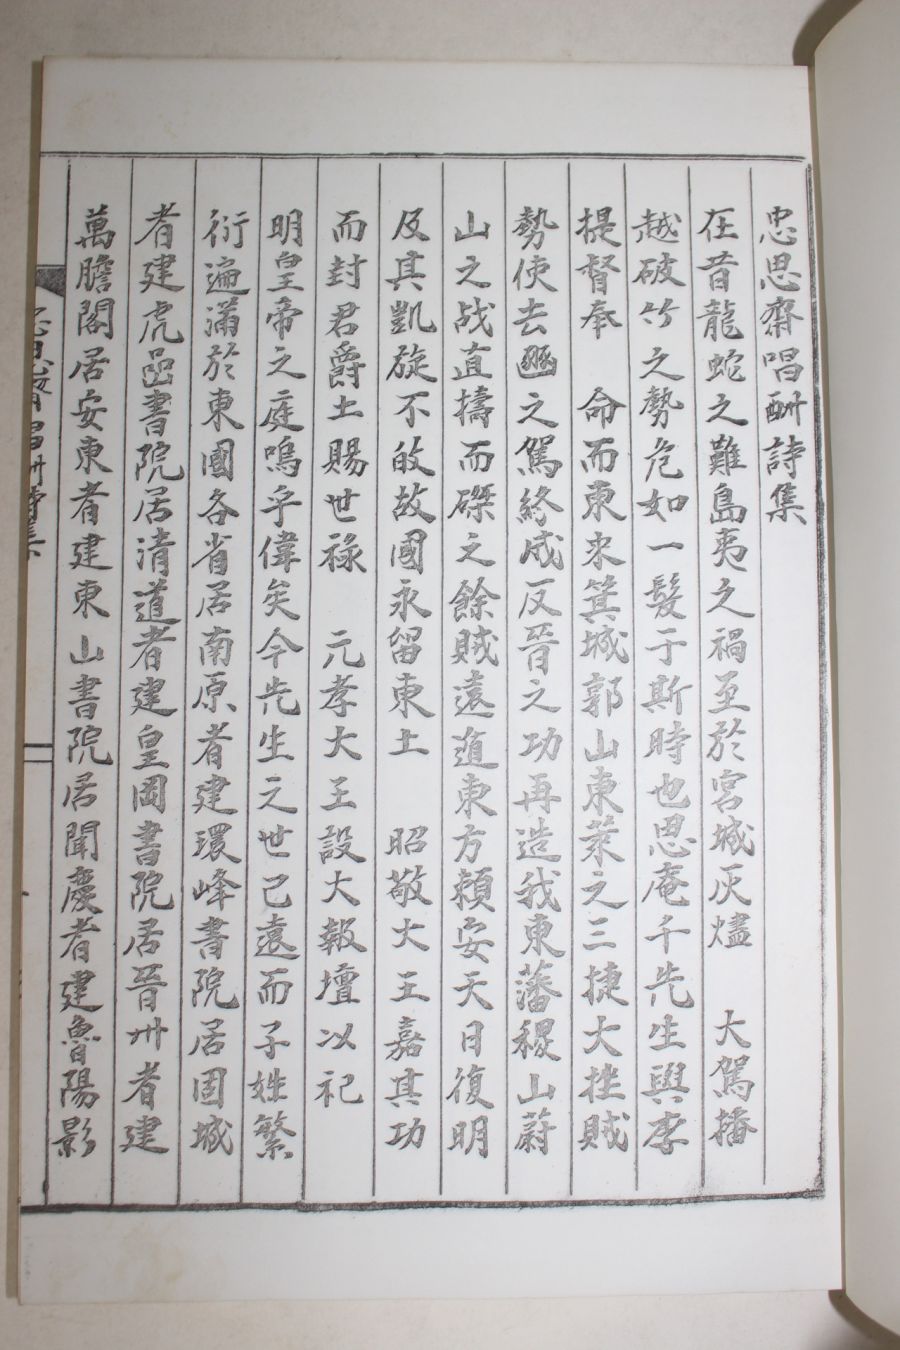 忠思齋唱酬詩集
在昔龍蛇之難島夷之禍至於宮城灰燼 大駕播
越破竹之勢危如一髮于斯時也思庵千先生與李
提督奉 命而東來箕城郭山東萊之三捷大挫賊
勢使去邠之駕終成反晉之功再造我東藩稷山蔚
山之战直擣而磔之餘賊遠遁東方頼安天日復明
及其凱旋不敀故國永留東土 昭敬大王嘉其功
而封君爵土賜世祿 元孝大王設大報壇以祀
明皇帝之庭嗚乎偉矣今先生之世已遠而子姓繁
衍遍滿於東國各省居南原者建環峰書院居固城
者建虎嵒書院居清道者建皇岡書院居晉州者建
萬膽閣居安東者建東山書院居聞慶者建魯陽影